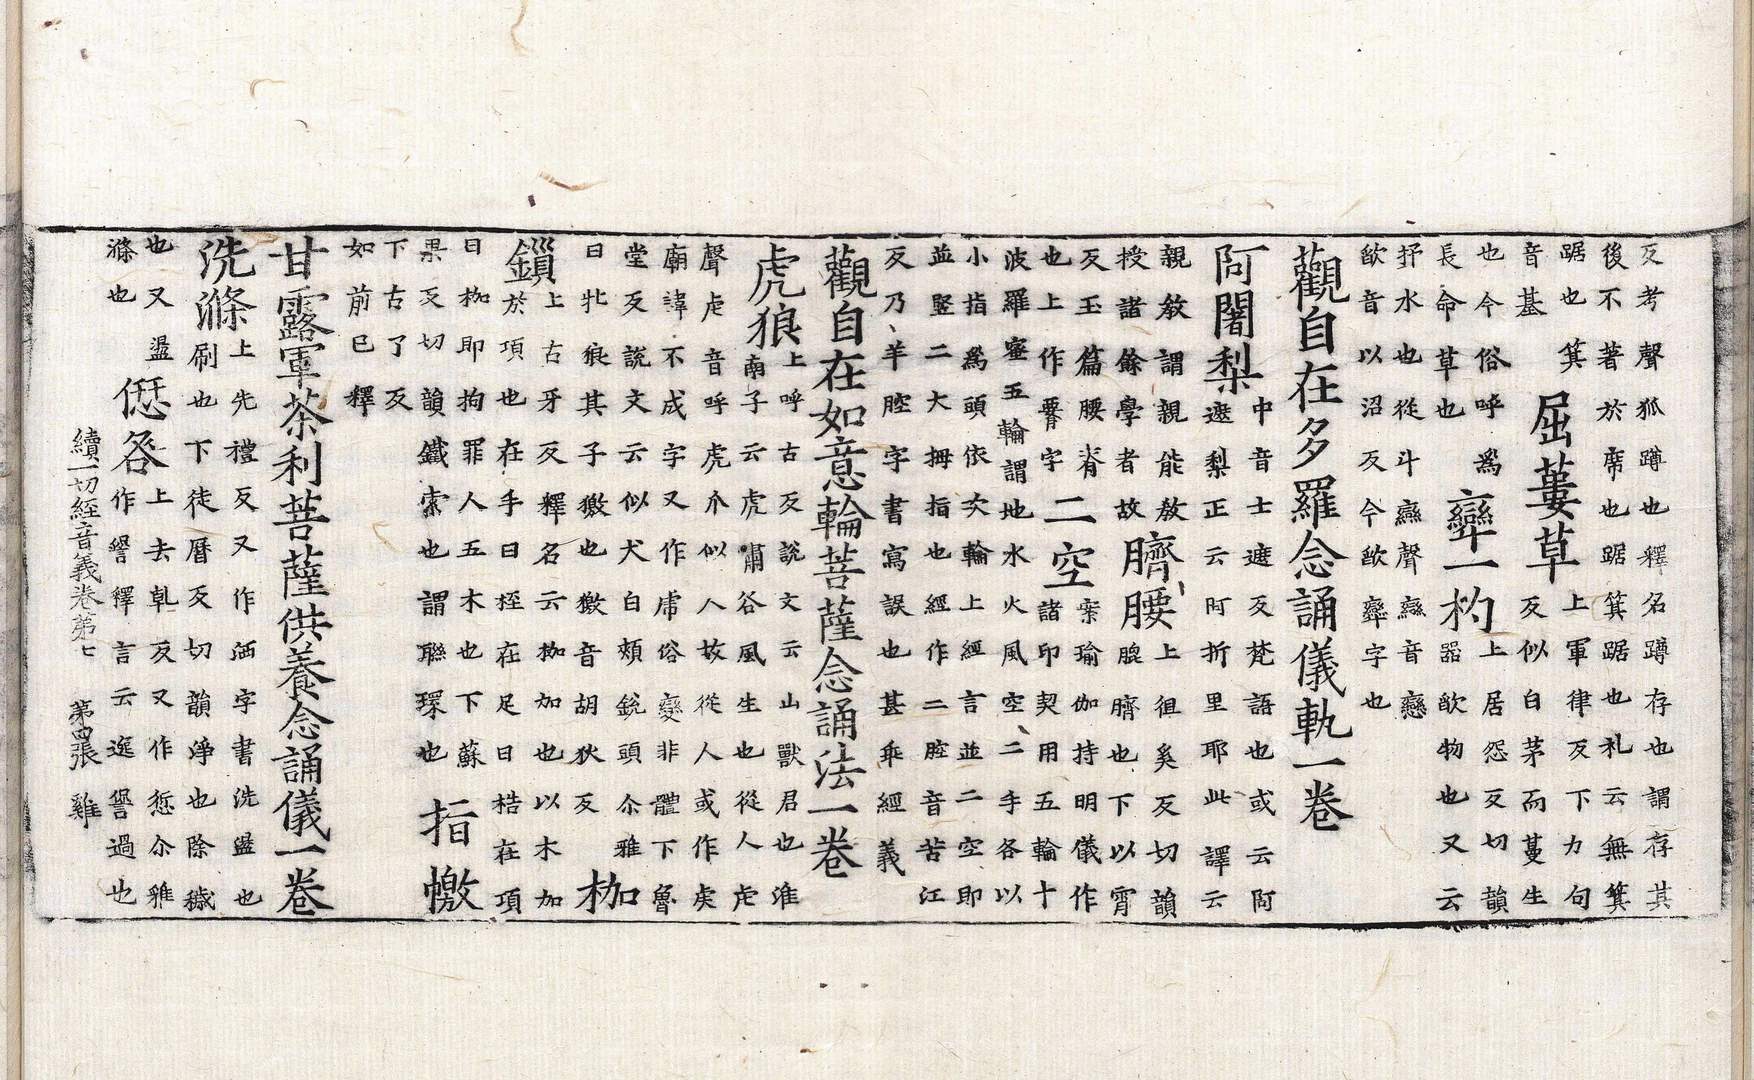 反考聲狐蹲也釋名蹲存也謂存其
後不著於席也踞箕踞也札云無箕
踞也箕
音基
屈蔞草
上軍律反下力句
反似白茅而蔓生
也今俗呼為
長命草也
一杓
上居怨反切韻
器㰸物也又云
抒水也從斗聲音戀
㰸音以沼反今㰸字也
觀自在多羅念誦儀軌一卷
阿闍梨
中音士遮反梵語也或云阿
遮梨正云阿折里耶此譯云
親教謂親能教
授諸餘學者故
臍腰
上徂奚反切韻
膍臍也下以霄
反玉篇腰脊
也上作字
二空
案瑜伽持明儀作
諸印契用五輪十
波羅蜜五輪謂地水火風空二手各以
小指為頭依次輪上經言並二空即
並竪二大拇指也經作二腔音苦江
反乃羊腔字書寫誤也甚乖經義
觀自在如意輪菩薩念誦法一卷
虎狼
上呼古反說文云山獸君也淮
南子云虎嘯谷風生也從人虍
聲虍音呼虎爪似人故從人或作
廟諱不成字又作俗變非體下魯
堂反說文云似犬白頰銳頭尒雅
曰牝狼其子獥也獥音胡狄反
枷
鎻
上古牙反釋名云枷加也以木加
於項也在手曰桎在足曰梏在項
曰枷即拘罪人五木也下蘇
果反切韻鐵索也謂聯環也
指
下古了反
如前已釋
甘露軍茶利菩薩供養念誦儀一卷
洗滌
上先禮反又作洒字書洗盪也
刷也下徒曆反切韻淨也除穢
也又盪
滌也
𠎝咎
上去乹反又作愆尒雅
作諐釋言云逸諐過也
續一切經音義卷第七 第四張 雞